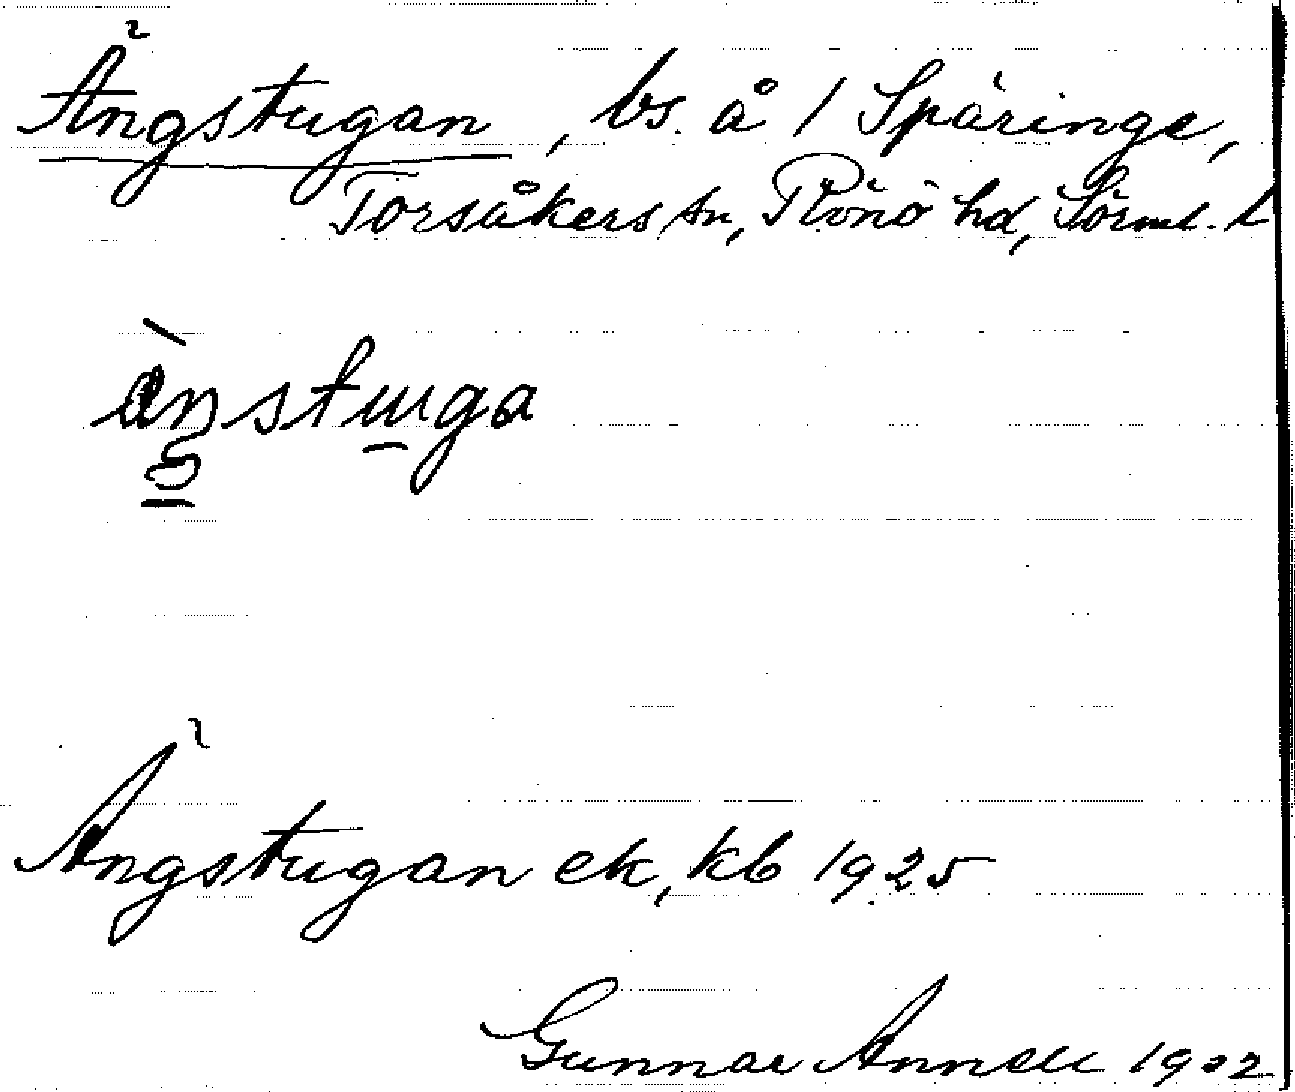 Ängstugan, bs. å 1 Späringe,
Torsåkers sn, Rönö hd, Sörml. l
ängstuga
Ängstugan ek, kb 1925
Gunnar Annell 1932